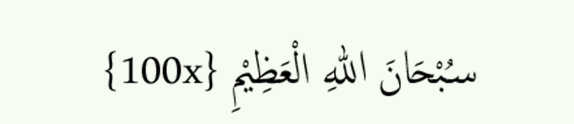 سُبْحَانَ اللهِ الْعَظِيْمِ {100x}